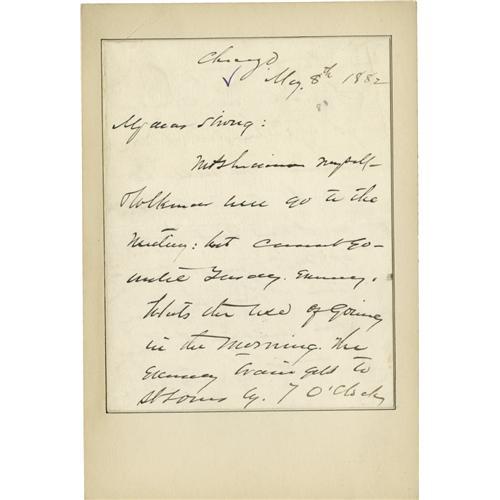 Chicago
May 8th 1882
My dear Strong:
myself
will go to the
Meeting: but cannot go
until Tuesday Evening.
Whats the use of Going
in the Morning. The
Evening train gets to
St Louis by 7 O'Clock